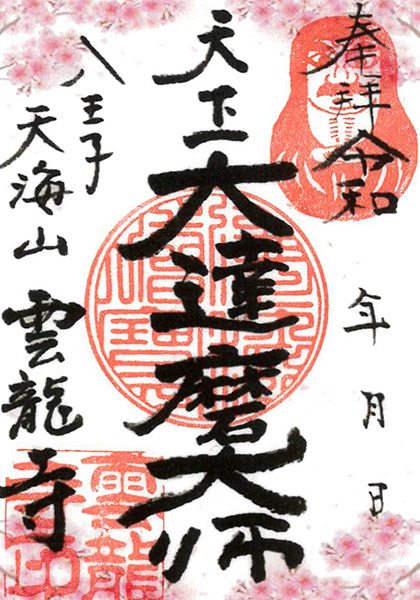 奉拝令和
年月日
天下一
大達磨大師
八王子
天海山雲龍寺
雲龍
寺印